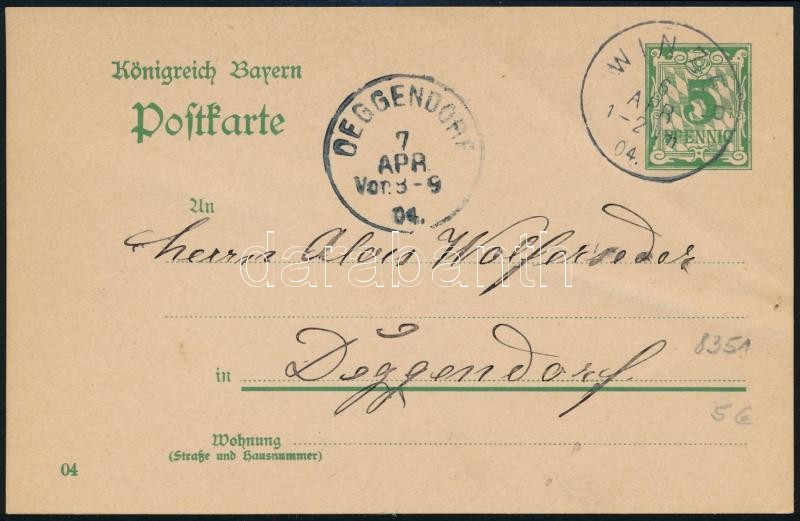 Königreich Bayern
Postkarte
WINZER
6
APR
1-2
04.
5
PFENNIG
DEGGENDORF
7
APR.
Vor.8-9
04.
An
Herrn Alois Wolferseder
darabanth
in Deggendorf.
8351
5 €
Wohnung
(Straße und Hausnummer)
04